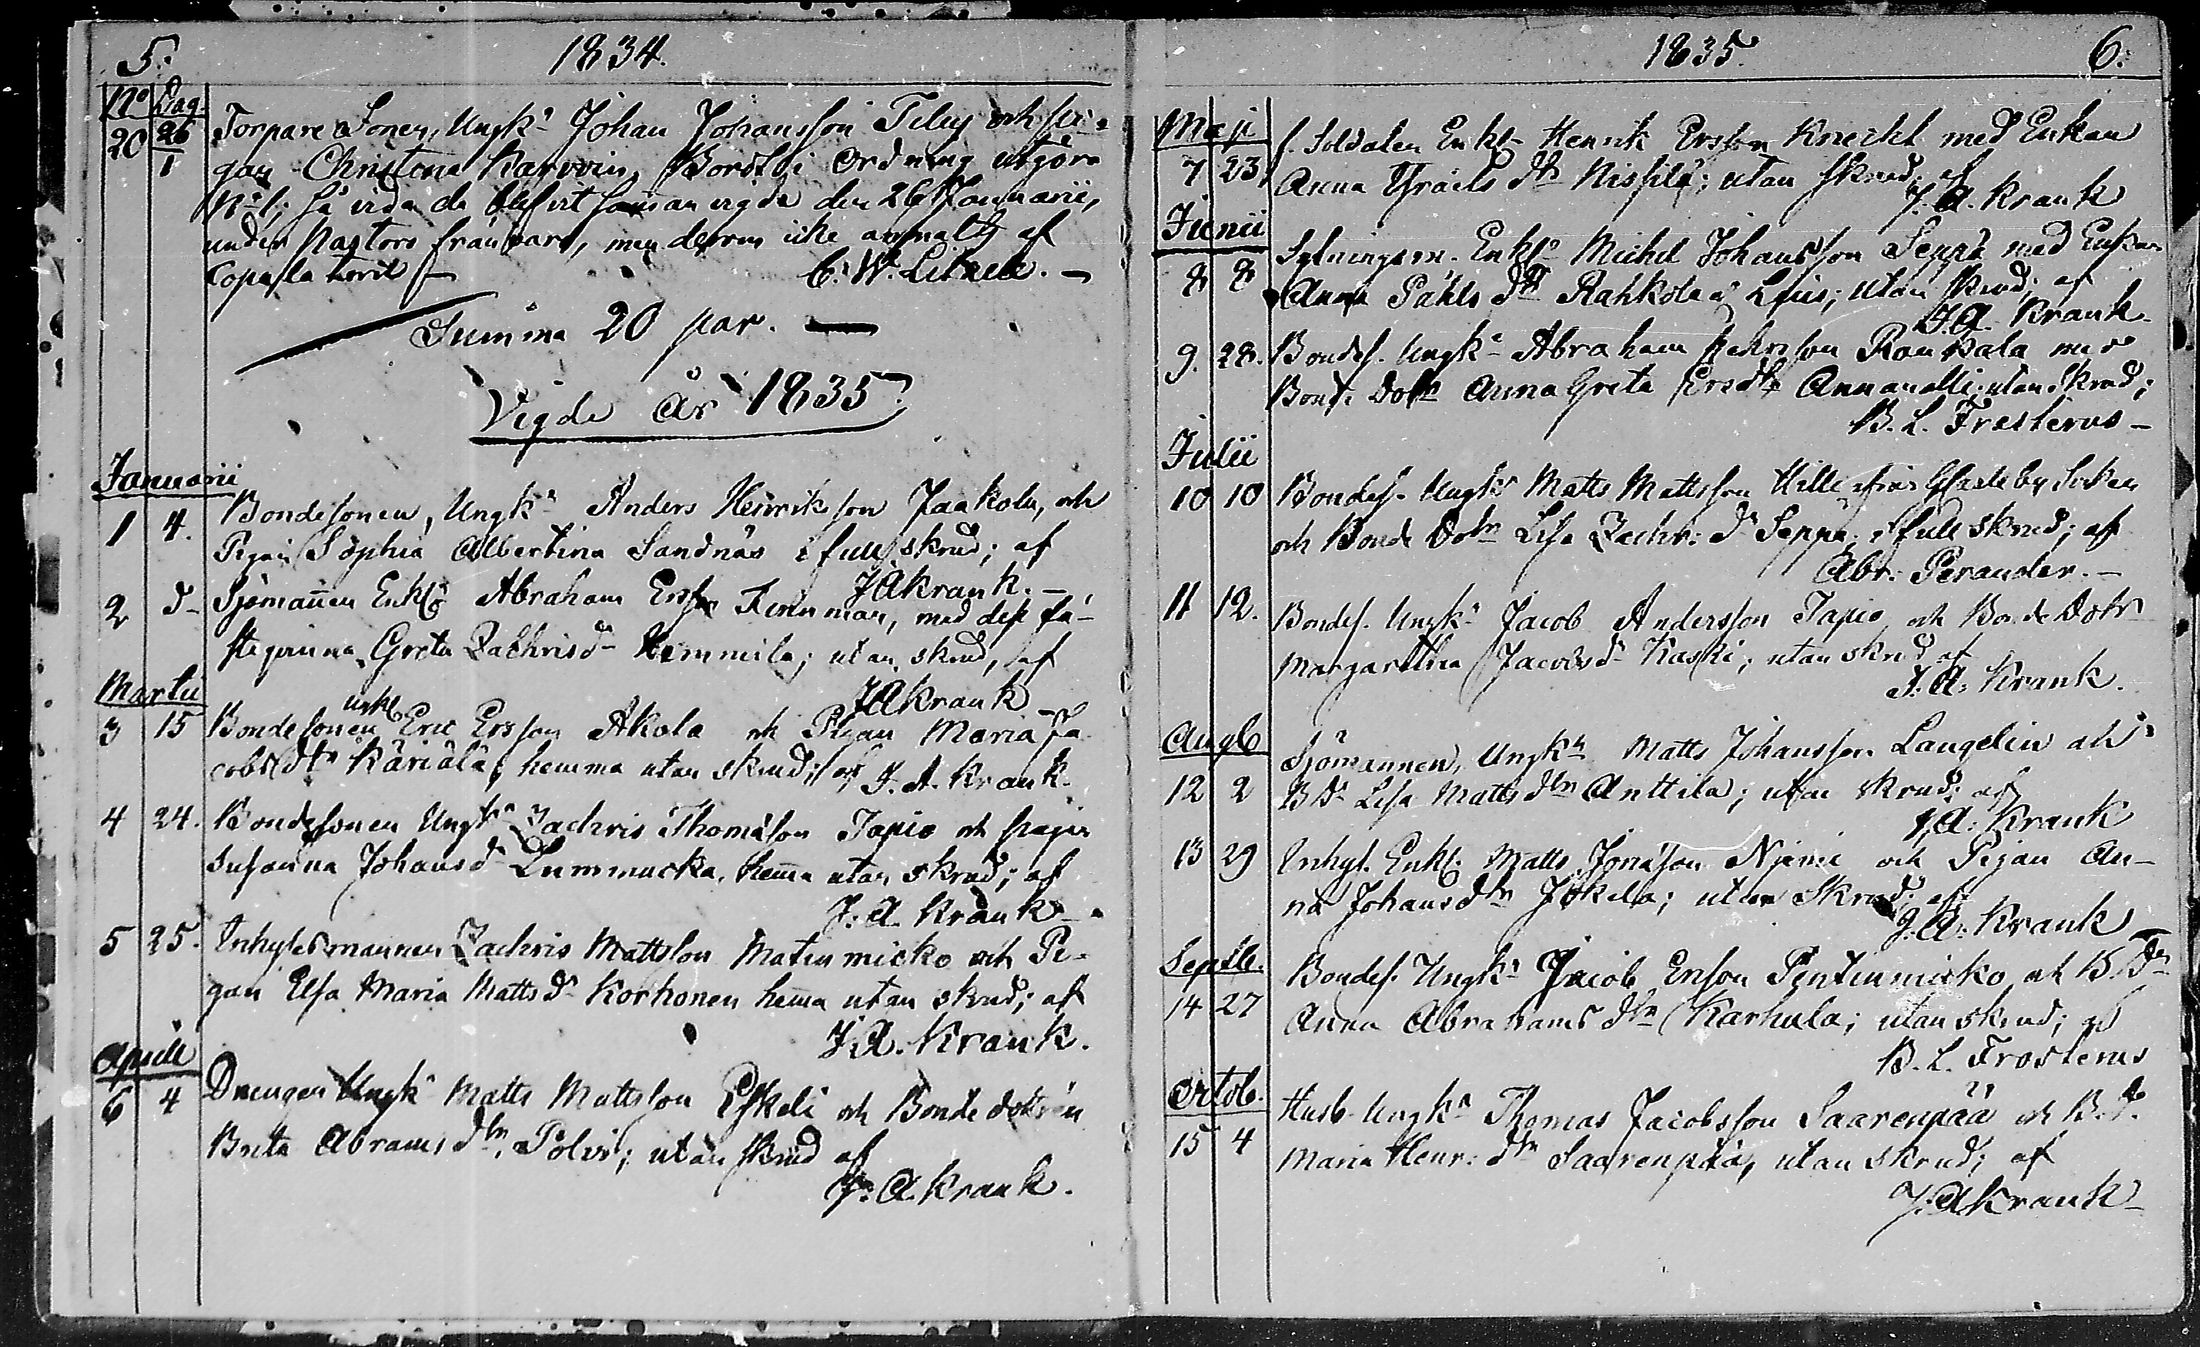 5.
1834.
No Dag.
20 26/1 Torpare Sonen, Ungk:n Johan Johansson Tilus och pi-
gan Christina Karvoin, Bordt i ordning utgöra
N:o 1; så vida de blifvit samman vigde den 26 Januarii,
under Pastors frånvaro, men derom icke anmält af
Copulator
C. W.
Summa 20 par.
Vigde År 1835.
Januarii
1 4. Bondesonen, Ungk:n Anders Henriksson Jaakola, och
Pigan Sophia Albertina Sandnäs i full skrud; af
J A Krank.
2 d- Sjömannen Enkl: Abraham Ersson Finnman, med dess fä-
stequinna Greta Zachrisd:r Hemmila; utan skrud, af
J A Krank
Martii
3 15 Bondesonen Enkl. Eric Ersson Akola och Pigan Maria Ja-
cobsdtr Käriälä; hemma utan skrud; af J. A. Krank.
4 24. Bondesonen Ungk:n Zachris Thomasson Tapio och pigan
Susanna Johansd:r Lummucka, hema utan skrud; af
J. A. Krank
5 25. Inhyses mannen Zachris Mattsson Matinmicko och Pi-
gan Elsa Maria Mattsd:r Korhonen hema utan skrud; af
J. A. Krank.
Aprill
6 4 Drengen Ungk:n Matts Mattsson Eskeli och Bonde dottren
Brita Abramsd:tr Polvi; utan skrud af
J. A. Krank.
1835.
6.
Maji
7 23 f. Soldaten Enkl. Henrik Ersson Knecht med Enkan
Anna Israels d:tr Nissilä; utan skrud; af
J. A. Krank
Junii
8 8 Sytningsm. Enkl. Michel Johansson Seppä med Enkan
Anna Påhls d:tr Rahkola utan skrud; af
J. A. Krank.
9. 28. Bondes. Ungk:n Abraham Roukala med
Bonde Dotr Anna Greta Ersdtr Annanolli utan skrud;
B. L. Frosterus
Julii
10 10 Bondes. Ungk:n Matts Mattsson Hilli ifrån Gladeby Soken
och Bonde Dotr Lisa Zachr: d:r Seppä; i full skrud; af
Abr. Perander.
11 12. Bondes. Ungk:n Jacob Andersson Tapio och Bonde Dotr
Margaretha Jacobsd:r Kaski; utan skrud af
J. A. Krank.
Augti
12 2 Sjömannen, Ungk:n Matts Johansson Langelin och
B D:r Lisa Matts d:tr Anttila; utan skrud; af
J. A. Krank
13 29 Inhys. Enkl. Matts Jonasson Niemi och Pigan An-
na Johansd:tr Jokela; utan skrud; af
J. A. Krank
Septb.
14 27 Bondes. Ungk:n Jacob Ersson Pentinmicko och B. D:r
Anna Abrahams d:tr Karhula; utan skrud; af
B. L. Frosterus
Octob.
15 4 Husb. Ungk:n Thomas Jacobsson Saarenpää och B. d:r
Maria Henr: d:tr Saarenpää, utan skrud; af
J. A Krank